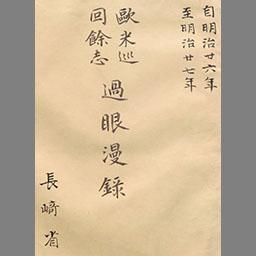 自明治廿六年
至明治廿七年
歐米巡
回餘志
過眼漫錄
長崎省